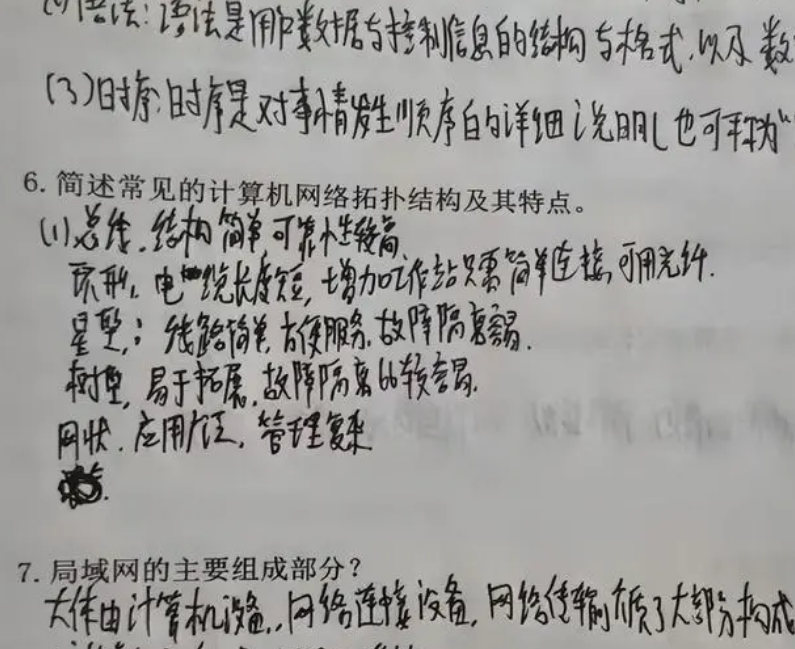 (2)语法:语法是用户数据与控制信息的结构与格式,以及数
(3)时序:时序是对事情发生顺序的详细说明(也可称为“
6. 简述常见的计算机网络拓扑结构及其特点。
(1)总线.结构简单,可靠性较高,
环形,电缆长度短,增加工作站只需简单连接,可用光纤.
星型,:线路简单,方便服务,故障隔离容易.
树型,易于拓展,故障隔离比较容易.
网状.应用广泛,管理复杂
7. 局域网的主要组成部分?
大体由计算机设备,网络连接设备,网络传输介质3大部分构成